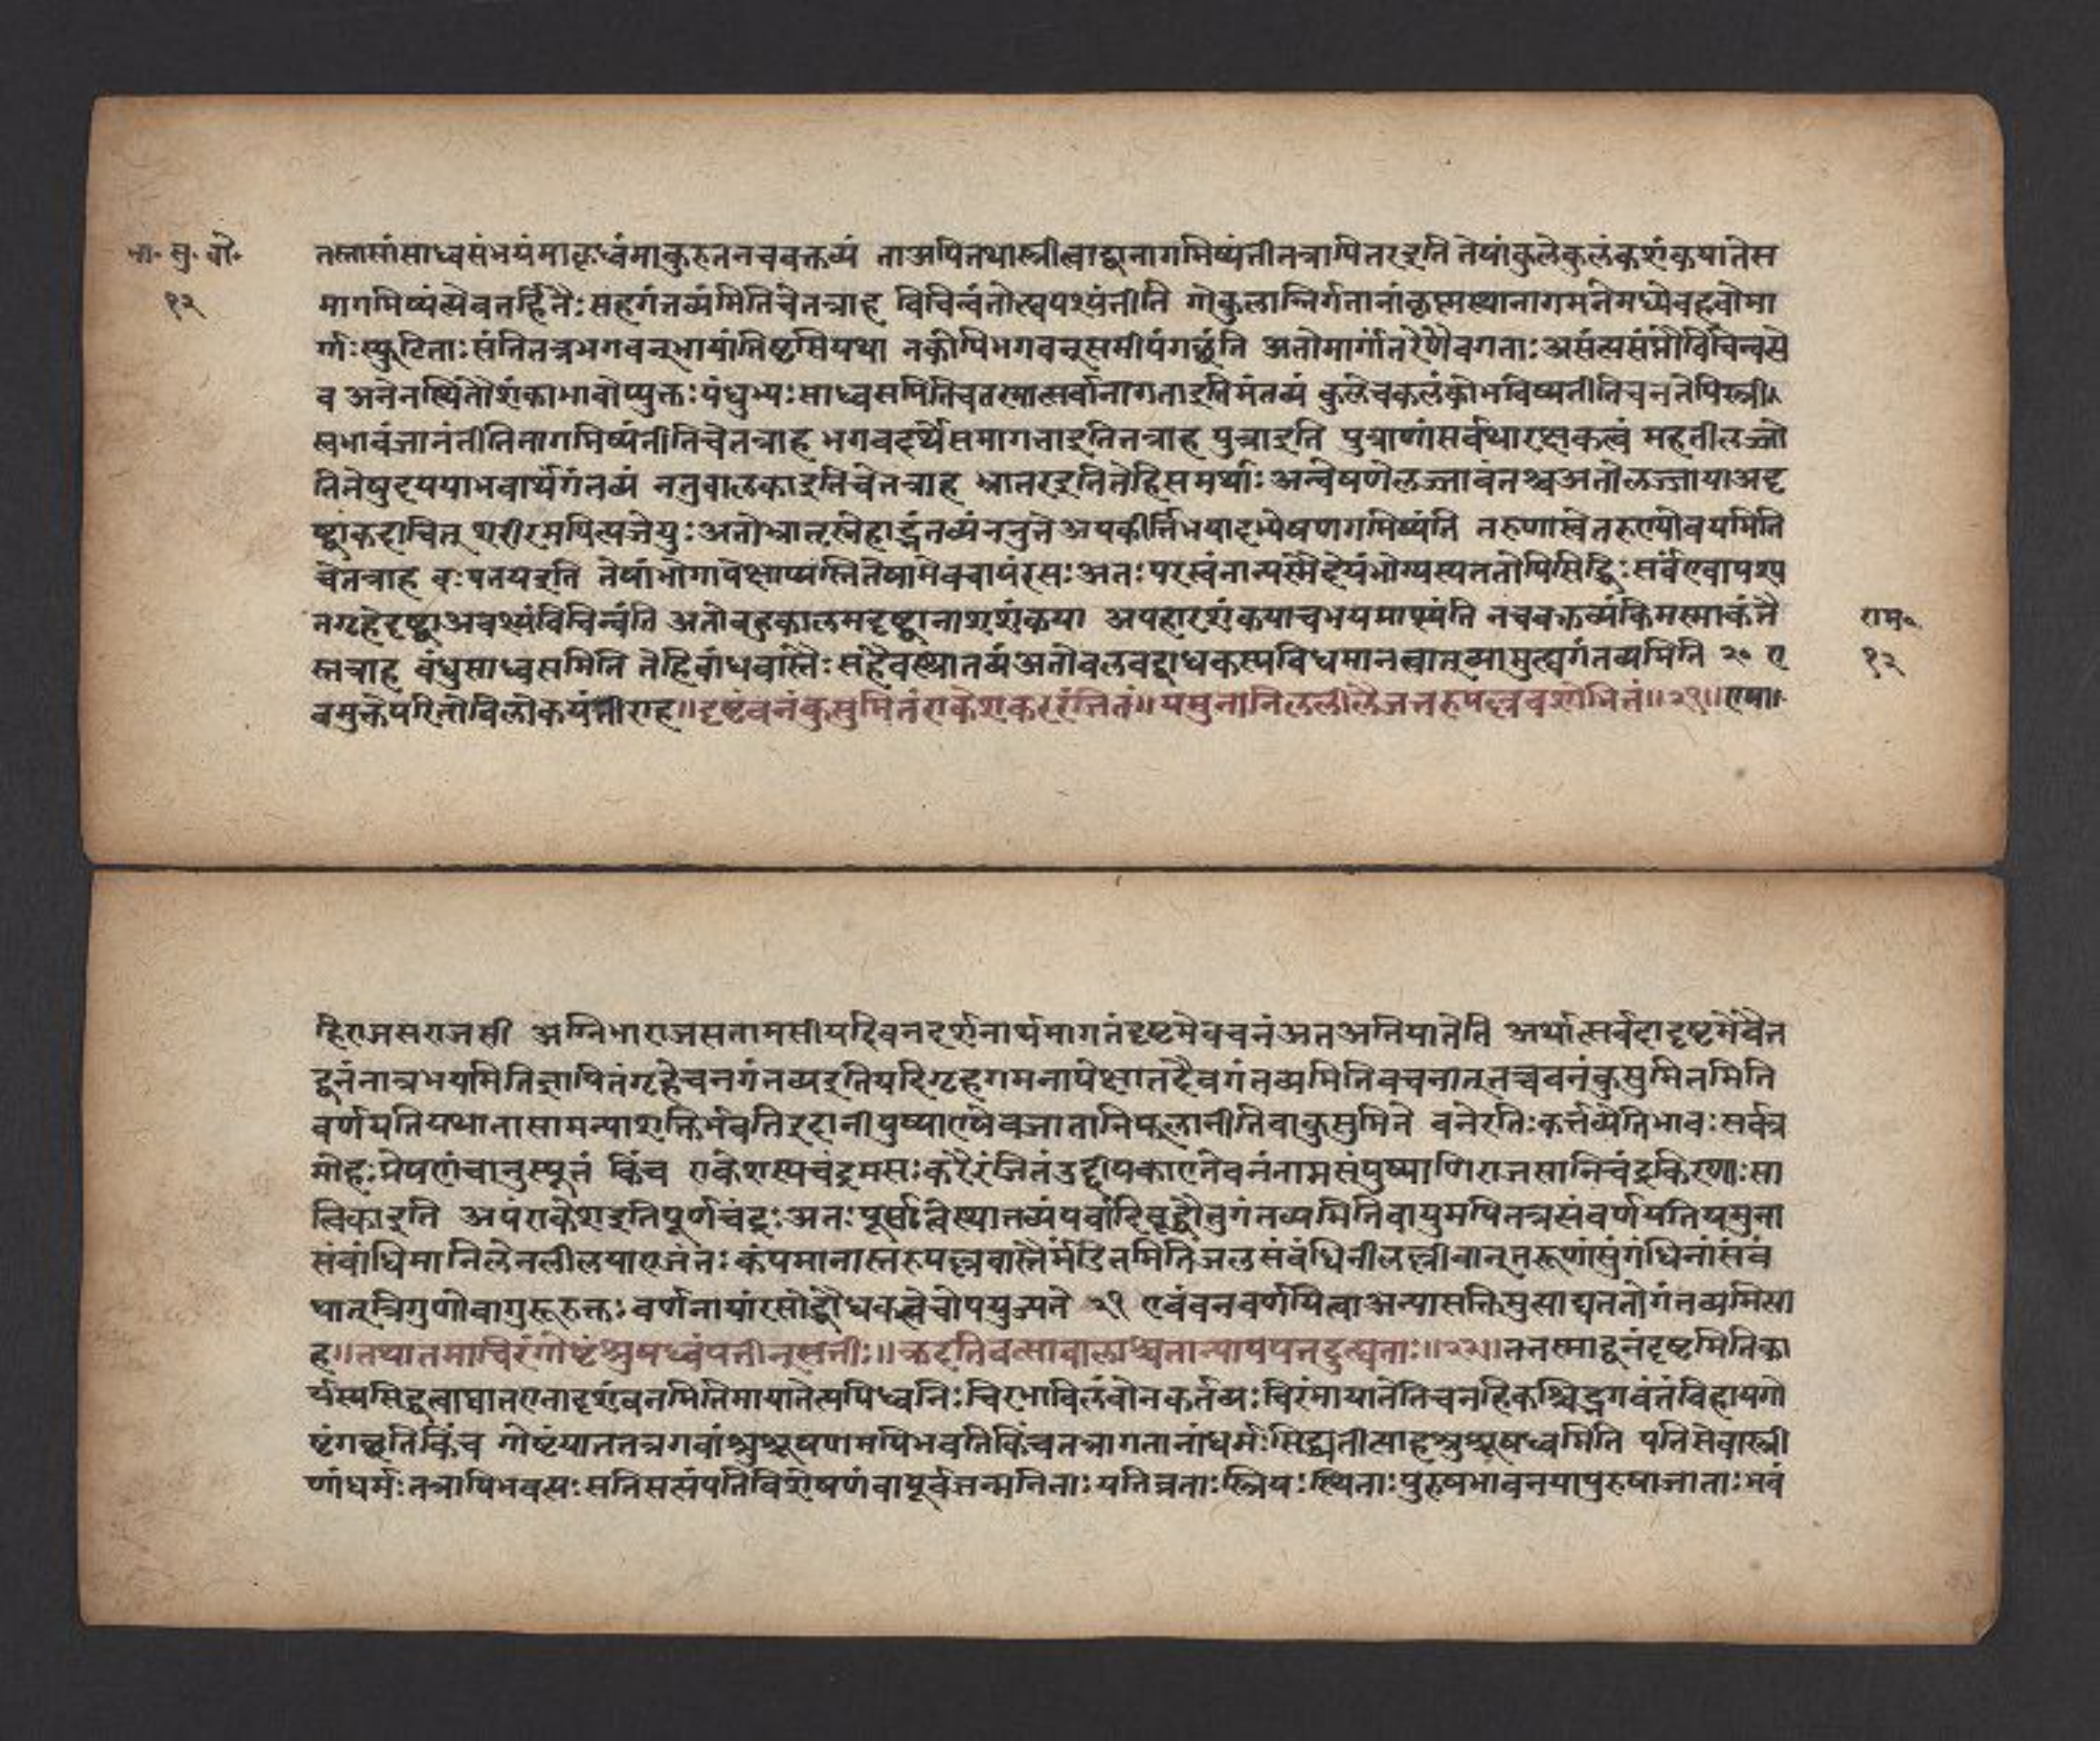 भा॰ सु॰ बो॰
१२
तस्तासांसाध्वसंभयंमाकृध्वंमाकुरुतनचवक्तव्यं ताअपितथास्त्रीत्वाद्वानागमिष्यंतीतत्रापितरइति तेषांकुलेकुलंकशंकयातेस
मागमिष्यंत्येवतर्हितैःसहगंतव्यमितिचेतत्राह विचिन्वंतोत्द्यपश्यंतीति गोकुलान्निर्गतानांकृष्णस्थानागमनेमध्येबहवोमा
र्गाःस्फुटिताःसंतितत्रभगवन्मायांतिष्टसियथा नकोपिभगवत्समीपंगछंति अतोमार्गांतरेणैवगताःअसंत्यसंप्तौविचिन्वसे
व अनेनस्थितौशंकाभावोप्युक्तःपंधुभ्यःसाध्वसमितिचतस्मात्सर्वानागताइतिमंतव्यं कुलेचकलंकोभविष्यतीतिचनतेपिस्त्री
स्वभावंजानंतीतिनागमिष्यंतीतिचेतत्राह भगवदर्थेसमागताइतितत्राह पुत्राइति पुत्राणांसर्वथारक्षकत्वं महतीलज्जो
तितेषुदययाभवार्थंगंतव्यं ननुबालकाइतिचेतत्राह भ्रातरइतितेहिसमर्थाः अन्वेषणेलज्जावंतश्चअतोलज्जायाअदृ
ष्ट्वाकदाचित् शरीरमपित्यजेयुःअतोभ्रातृस्नेहाद्गंतव्यंननुतेअपकीर्तिभयादप्येषणगमिष्यंति तरुणास्वेतरुण्योवयमिति
चेतत्राह वःपतयइति तेषांभोगापेक्षाप्यस्तितेषामेवचायंरसःअतःपरस्वंनान्यस्मैदेयंभोग्यस्यततोपिसिद्धिःसर्वएवापश्य
नगृहेदृष्ट्वाअवश्यंविचिन्वंति अतोबहुकालमदृष्ट्वानाशशंकया अपहारशंकयाचभयमाप्स्यंति नचवक्तव्यंकिमस्माकंतै
स्तत्राह बंधुसाध्वसमिति तेहिबांधवास्तैःसहैवस्थातव्यंअतोबलवद्बाधकस्यविधमानत्वात्व्यामुत्द्यगंतव्यमिति २० ए
वमुक्तेपरितोविलोकयंतीराह॥दृष्टंवनंकुसुमितंराकेशकररंजितं॥यमुनानिललीलैजत्तरुपल्लवशोभितं॥२१॥एषा॥
राम॰
१२
हिराजसराजसी अग्निमाराजसतामसीयदिवनदर्शनार्थमागतंदृष्टमेवचनंअतअनियातेति अर्थात्सर्वदादृष्टमेवैत
द्वनंनात्रभयमितिज्ञापितंगृहेचनगंतव्यइतियरिगृहगमनापेक्षातदैवगंतव्यमितिवचनात्तच्चवनंकुसुमितमिति
वर्णयतियथातासामन्याशक्तिर्भवतिइदानीपुष्पाण्येवजातानिफलानीतिवाकुसुमिते वनेरतिःकर्त्तव्येतिभावःसर्वत्र
मोहःप्रेषणंचानुस्यूतं किंच राकेशस्यचंद्रमसःकरैरंजितंउद्दीपकाएतेवनंनामसंपुष्पाणिराजसानिचंद्रकिरणाःसा
त्विकाइति अपंराकेशइतिपूर्णचंद्रःअतःपूर्वाह्नेस्थातव्यंपर्वादिबूद्धौनुगंतव्यमितिवायुमपितत्रसंवर्णयतियमुना
संबांधिमानिलेनलीलयाएजंतःकंपमानास्तरुपल्लवास्तैर्मंडितमितिजलसंबंधिनीलल्लीवान्तरूणांसुगंधिनांसंबं
धात्त्रिगुणोवायुरुक्तःवर्णनायांरसोद्बोधकत्वेचोपयुज्यते २१ एवंवनवर्णयित्वाअन्यासक्तिमुत्पाद्यततोगंतव्यमित्या
ह॥तद्यातमाचिरंगोष्टंश्रुषध्वंपतीन्सतीः॥क्रदंतिवत्साबालाश्चतान्पाययतदुत्द्यताः॥२२॥ततस्माद्वनंदृष्टमितिका
र्यस्यसिद्धत्वाद्यातएतादृशंवनमितिमायातेत्यपिध्वनिःचिरभोविलंबोनकर्तव्यःचिरंमायातेतिचनहिकश्चिद्भगवंतंविहायगो
ष्टंगछतिकिंच गोष्टंयाततत्रगवांशुश्रूषणमपिभवतिकिंचतत्रागतानांधर्मःसिद्ध्यतीत्याहशुश्रूषध्वमिति पतिसेवास्त्री
णांधर्मःतत्रापिभवत्यःसतिसत्संपतिविशेषणंवापूर्वजन्मनिताःयतिव्रताःस्त्रियःस्थिताःपुरुषभावनयापुरुषाजाताःभवं